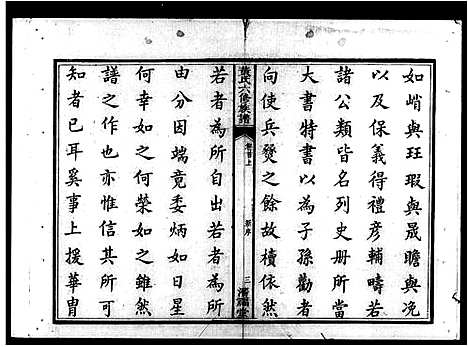 如峭與珏瑕與晟瞻與逸
以及保義得禮彥輔疇若
諸公類皆名列史册所當
大書特書以為子孫勸者
向使兵燹之餘故牘依然
氏六修族譜
卷首上
序
三
堂
若者為所自出若者為所
由分因端竟委炳如日星
何幸如之何榮如之雖然
譜之作也亦惟信其所可
知者已耳奚事上援華胄